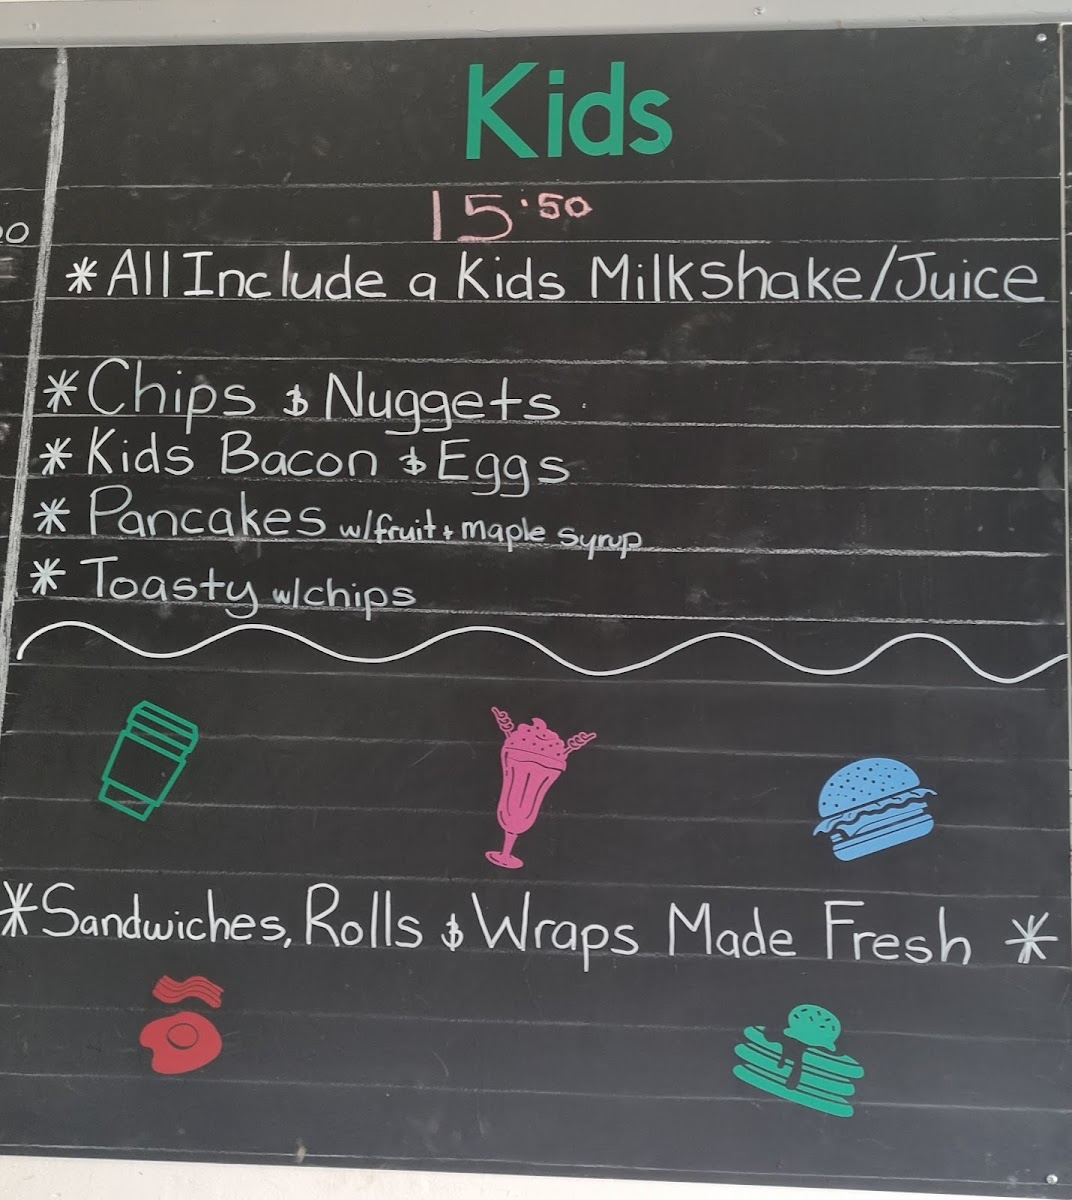 Kids
15.50
*All Include a Kids Milkshake/Juice
*Chips & Nuggets
*Kids Bacon & Eggs
*Pancakes w/fruit + maple syrup
*Toasty w/chips
*Sandwiches, Rolls & Wraps Made Fresh *